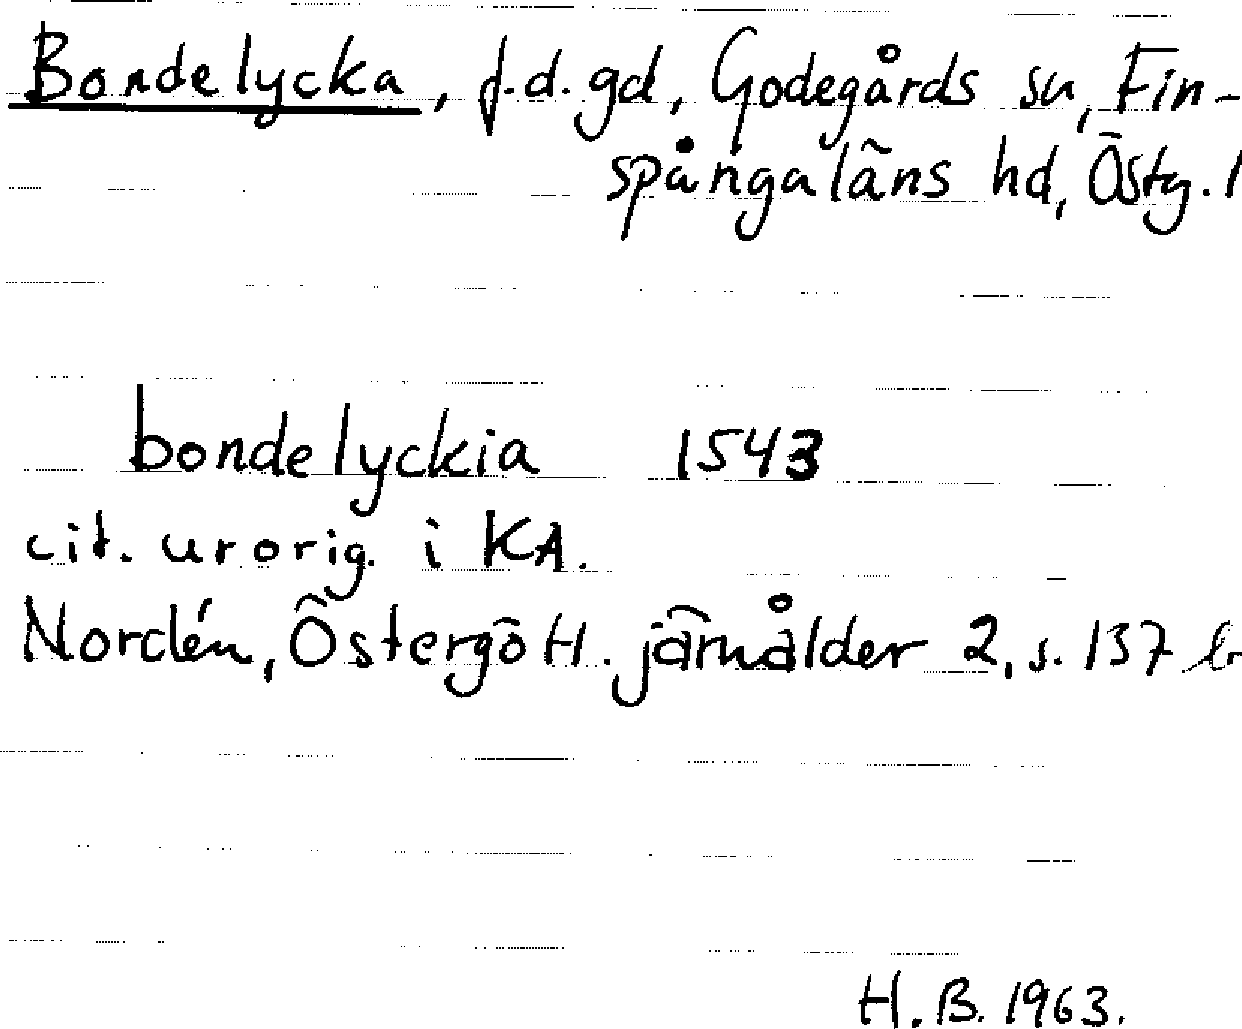 Bondelycka, f.d. gd, Godegårds sn, Fin-
spångaläns hd, Östg. l
bondelyckia 1543
cit. ur orig. i KA.
Nordén, Östergötl. järnålder 2, s. 137 b
H. B. 1963.